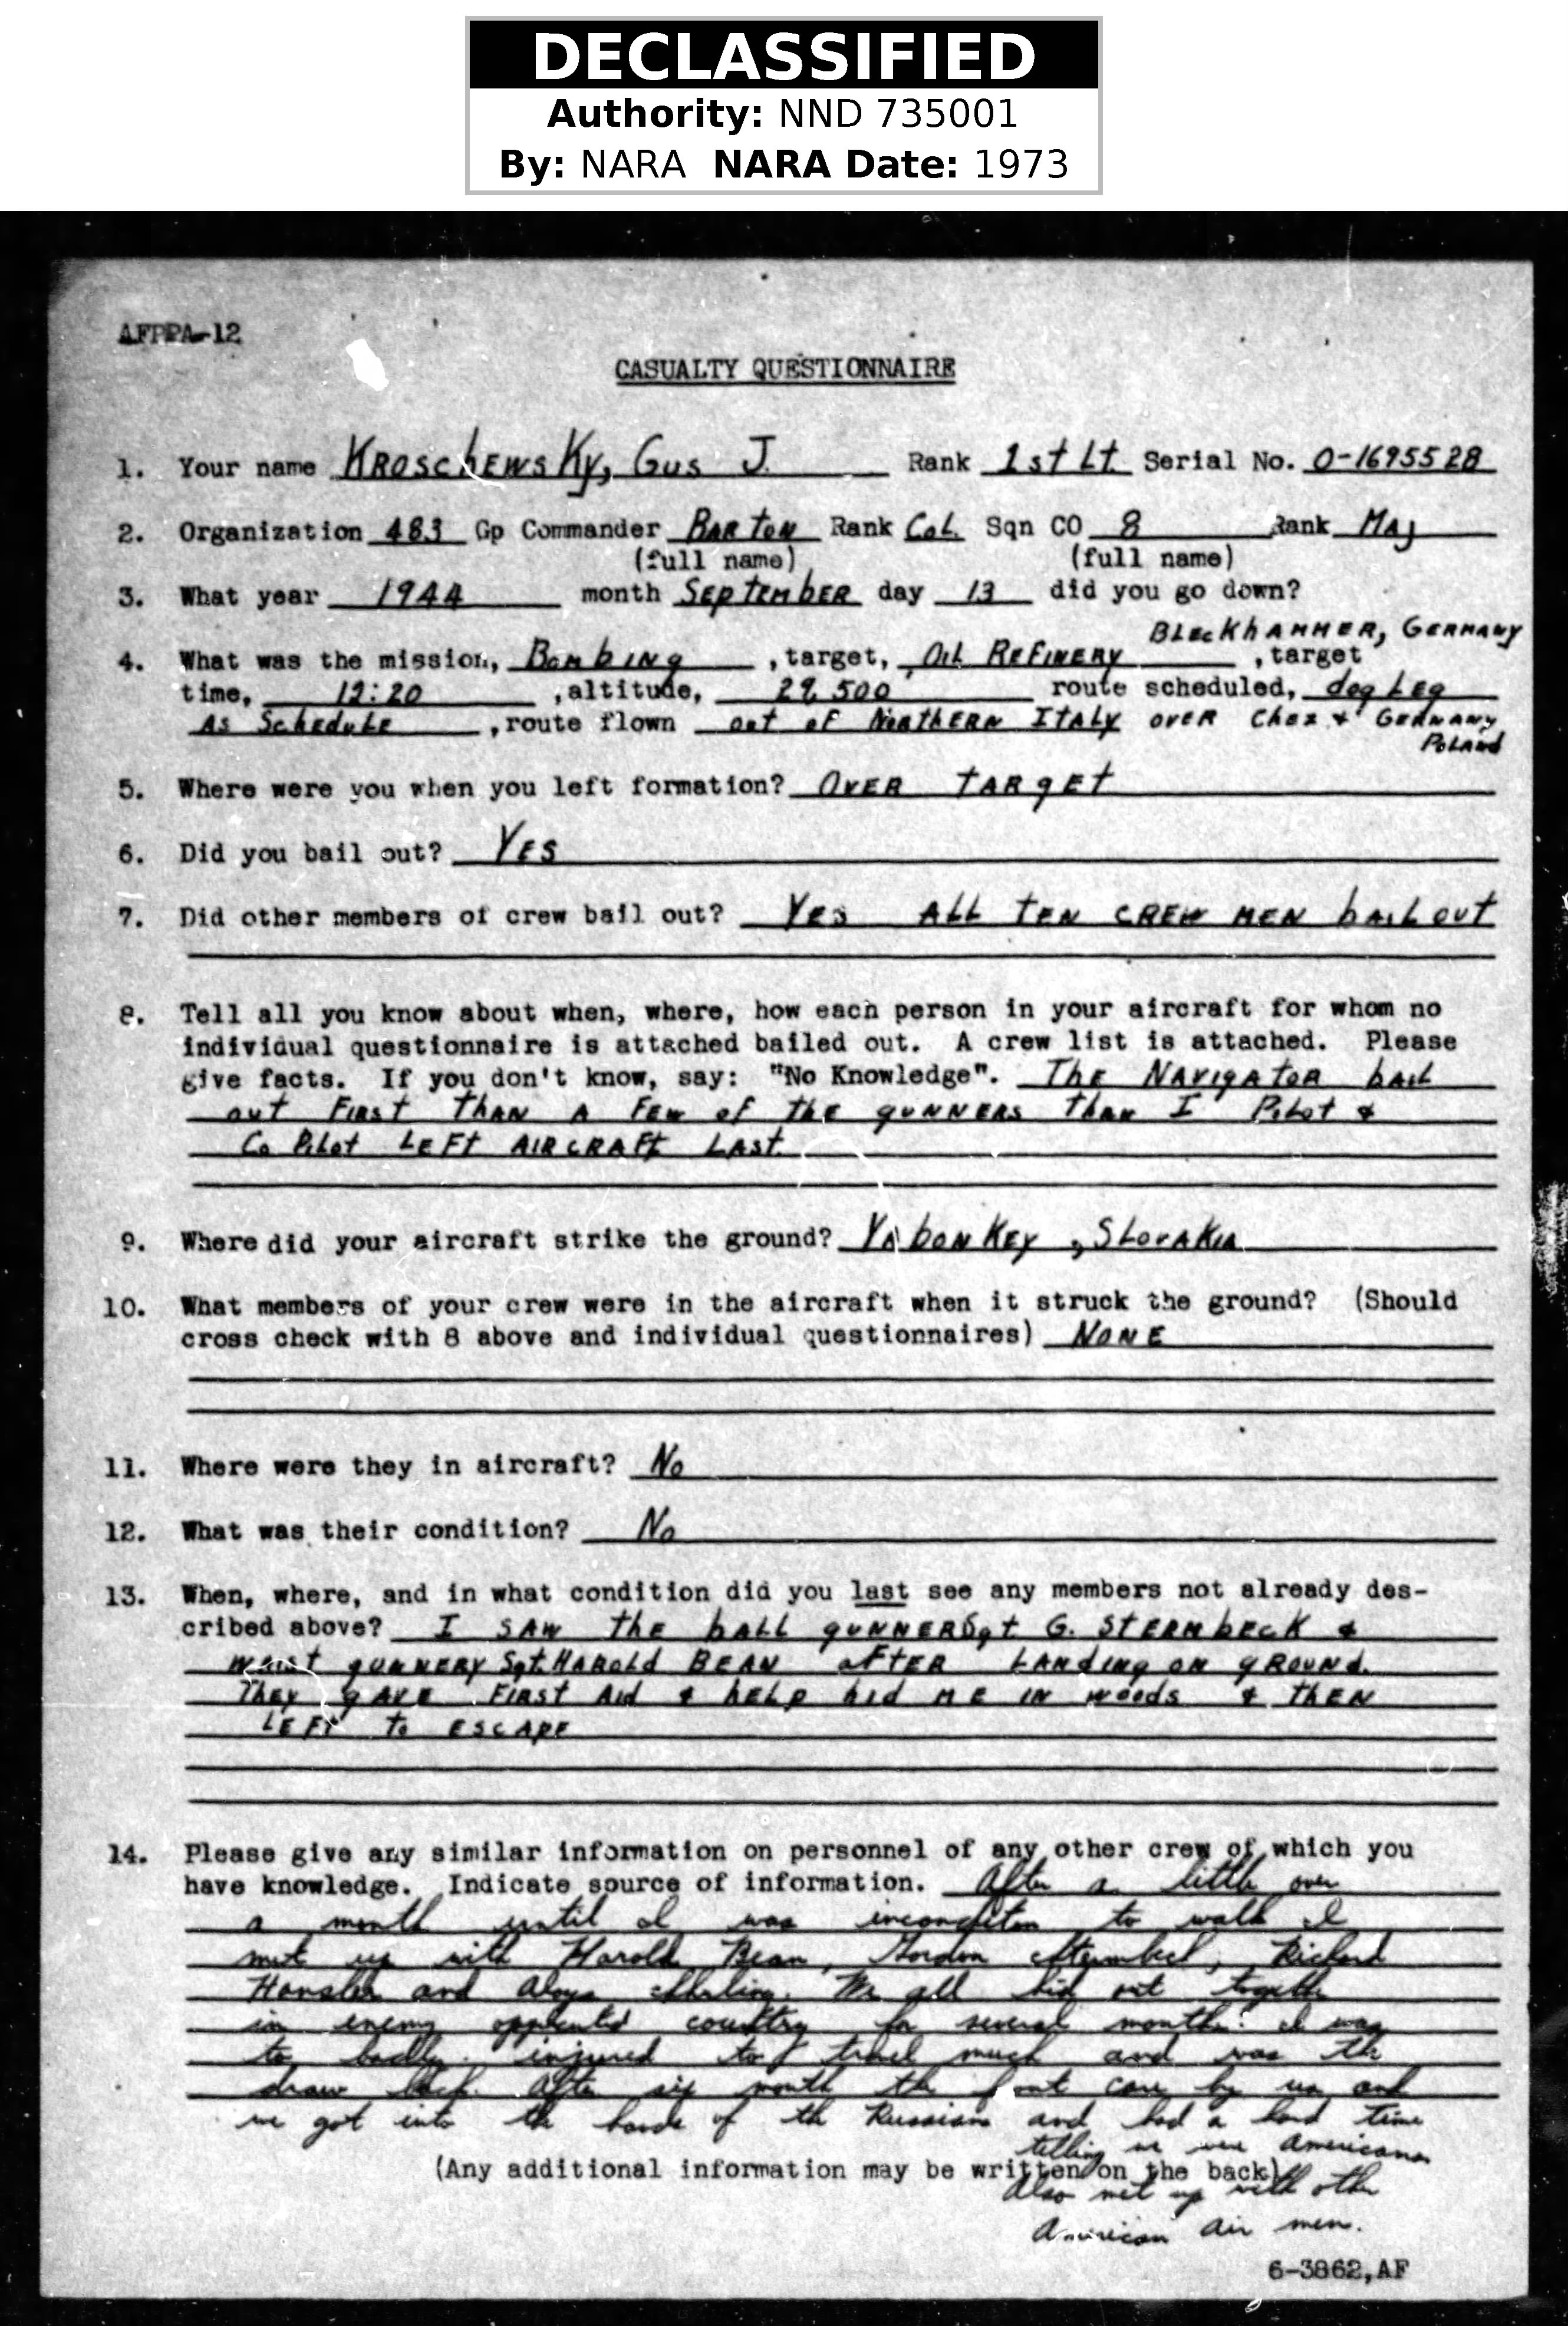 DECLASSIFIED
Authority: NND 735001
By: NARA NARA Date: 1973
AFPPA-12
CASUALTY QUESTIONNAIRE
1. Your name KROSCHEWSKY, GUS J. Rank 1st Lt Serial No. O-1695528
2. Organization 483 Gp Commander BARTON Rank Col. Sqn CO 8 Rank MAJ
(full name) (full name)
3. What year 1944 month SEPTEMBER day 13 did you go down?
BLECKHAMMER, GERMANY
4. What was the mission, Bombing , target, OIL REFINERY , target
time, 12:20 , altitude, 29,500 route scheduled, dog LEg
As Schedule , route flown out of NORTHERN ITALY OVER Chez + GERMANY
POLAND
5. Where were you when you left formation? OVER TARGET
6. Did you bail out? YES
7. Did other members of crew bail out? YES ALL TEN CREW MEN bAIL OUT
8. Tell all you know about when, where, how each person in your aircraft for whom no
individual questionnaire is attached bailed out. A crew list is attached. Please
give facts. If you don't know, say: "No Knowledge". THE NAVIGATOR bAIL
out FIRST THAN A FEW of THE gUNNERS than I Pilot &
Co Pilot LEFT AIRCRAFT LAST.
9. Where did your aircraft strike the ground? YAbONKEY, SLOVAKIA
10. What members of your crew were in the aircraft when it struck the ground? (Should
cross check with 8 above and individual questionnaires) NONE
11. Where were they in aircraft? No
12. What was their condition? No
13. When, where, and in what condition did you last see any members not already des-
cribed above? I SAW THE bALL gUNNER Sgt G. STERMbECK &
WAIST gUNNERY Sgt. HAROLD BEAN AFTER LANDING ON gROUND.
THEY gAVE FIRST AID & HELP hid ME IN woods & THEN
LEFT To ESCAPE
14. Please give any similar information on personnel of any other crew of which you
have knowledge. Indicate source of information. After a little over
a month until I was in to walk I
met up with Harold Bean, Gordon Richard
Hansler and We all hid out together
in enemy country for several month. I was
to badly injured to travel much and was the
draw back. After six month the front came by us and
we got into the hands of th Russians and had a hard time
telling we were Americans
(Any additional information may be written on the back)
Also met up with other
American Air men.
6-3862,AF